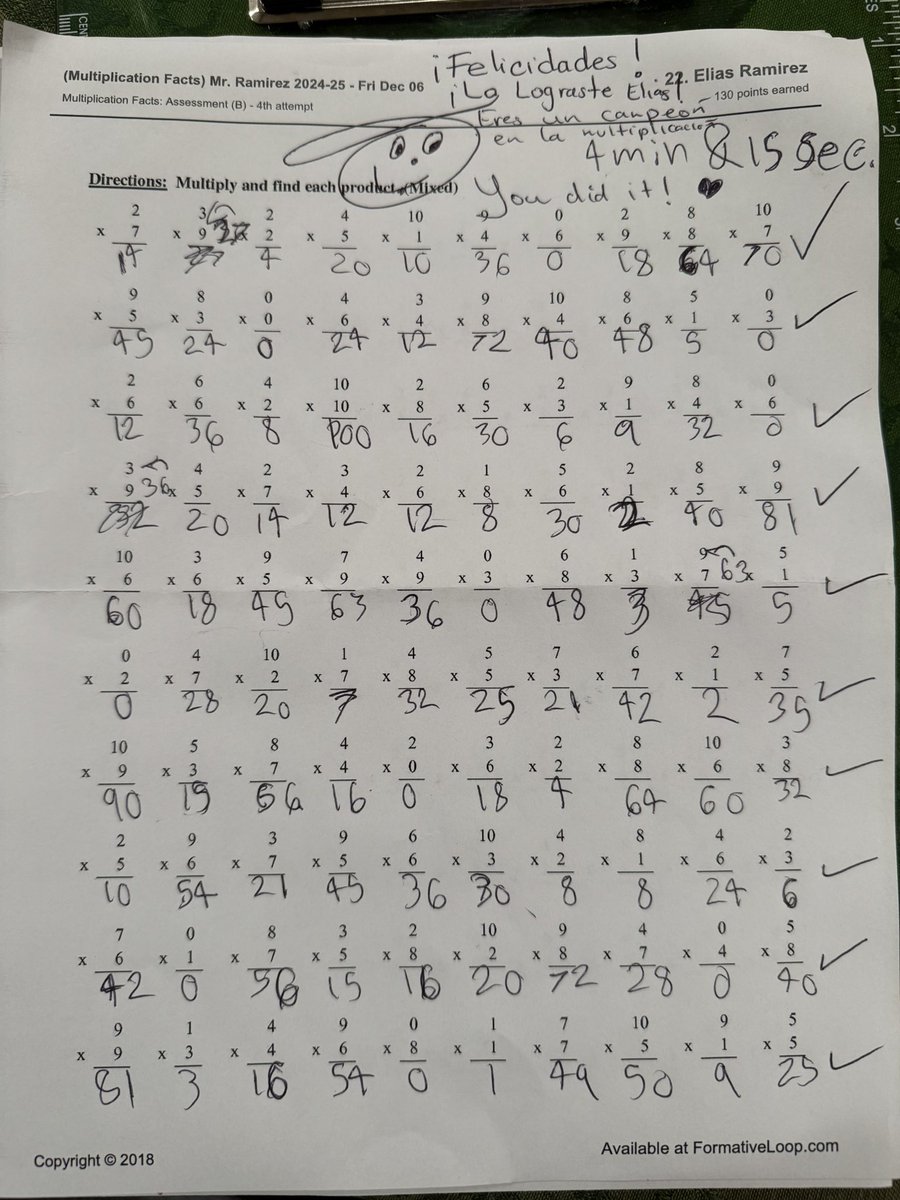 (Multiplication Facts) Mr. Ramirez 2024-25 - Fri Dec 06 ¡Felicidades! 22. Elias Ramirez
Multiplication Facts: Assessment (B) - 4th attempt ¡Lo Lograste Elias! 130 points earned
Eres un campeon
en la multiplicacion
4 min & 15 sec.
Directions: Multiply and find each product. (Mixed) You did it!
2 3 2 4 10 9 0 2 8 10
x 7 x 9 x 2 x 5 x 1 x 4 x 6 x 9 x 8 x 7
14 4 20 10 36 0 18 64 70
9 8 0 4 3 9 10 8 5 0
x 5 x 3 x 0 x 6 x 4 x 8 x 4 x 6 x 1 x 3
45 24 0 24 12 72 40 48 5 0
2 6 4 10 2 6 2 9 8 0
x 6 x 6 x 2 x 10 x 8 x 5 x 3 x 1 x 4 x 6
12 36 8 100 16 30 6 9 32 0
3 4 2 3 2 1 5 2 8 9
x 9 36 x 5 x 7 x 4 x 6 x 8 x 6 x 1 x 5 x 9
20 14 12 12 8 30 2 40 81
10 3 9 7 4 0 6 1 9 5
x 6 x 6 x 5 x 9 x 9 x 3 x 8 x 3 x 7 63 x 1
60 18 45 63 36 0 48 3 45 5
0 4 10 1 4 5 7 6 2 7
x 2 x 7 x 2 x 7 x 8 x 5 x 3 x 7 x 1 x 5
0 28 20 7 32 25 21 42 2 35
10 5 8 4 2 3 2 8 10 3
x 9 x 3 x 7 x 4 x 0 x 6 x 2 x 8 x 6 x 8
90 15 56 16 0 18 4 64 60 32
2 9 3 9 6 10 4 8 4 2
x 5 x 6 x 7 x 5 x 6 x 3 x 2 x 1 x 6 x 3
10 54 21 45 36 30 8 8 24 6
7 0 8 3 2 10 9 4 0 5
x 6 x 1 x 7 x 5 x 8 x 2 x 8 x 7 x 4 x 8
42 0 56 15 16 20 72 28 0 40
9 1 4 9 0 1 7 10 9 5
x 9 x 3 x 4 x 6 x 8 x 1 x 7 x 5 x 1 x 5
81 3 16 54 0 1 49 50 9 25
Copyright © 2018 Available at FormativeLoop.com